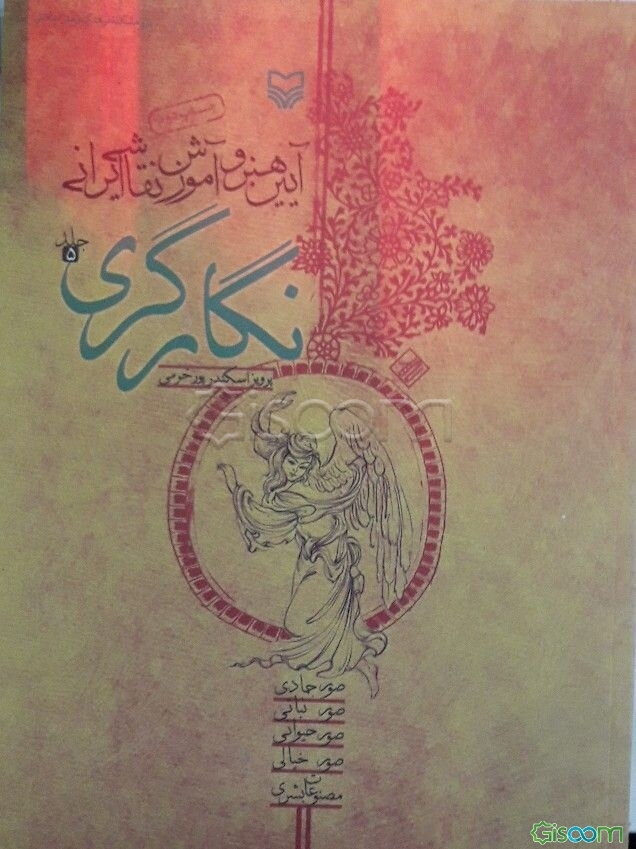 آیین هنر و آموزش نقاشی ایرانی
جلد ۵
نگارگری
پرویز اسکندرپور خرمی
Gisoom
صور جمادی
صور نباتی
صور حیوانی
صور خیالی
مصنوعات بشری
Gisoom